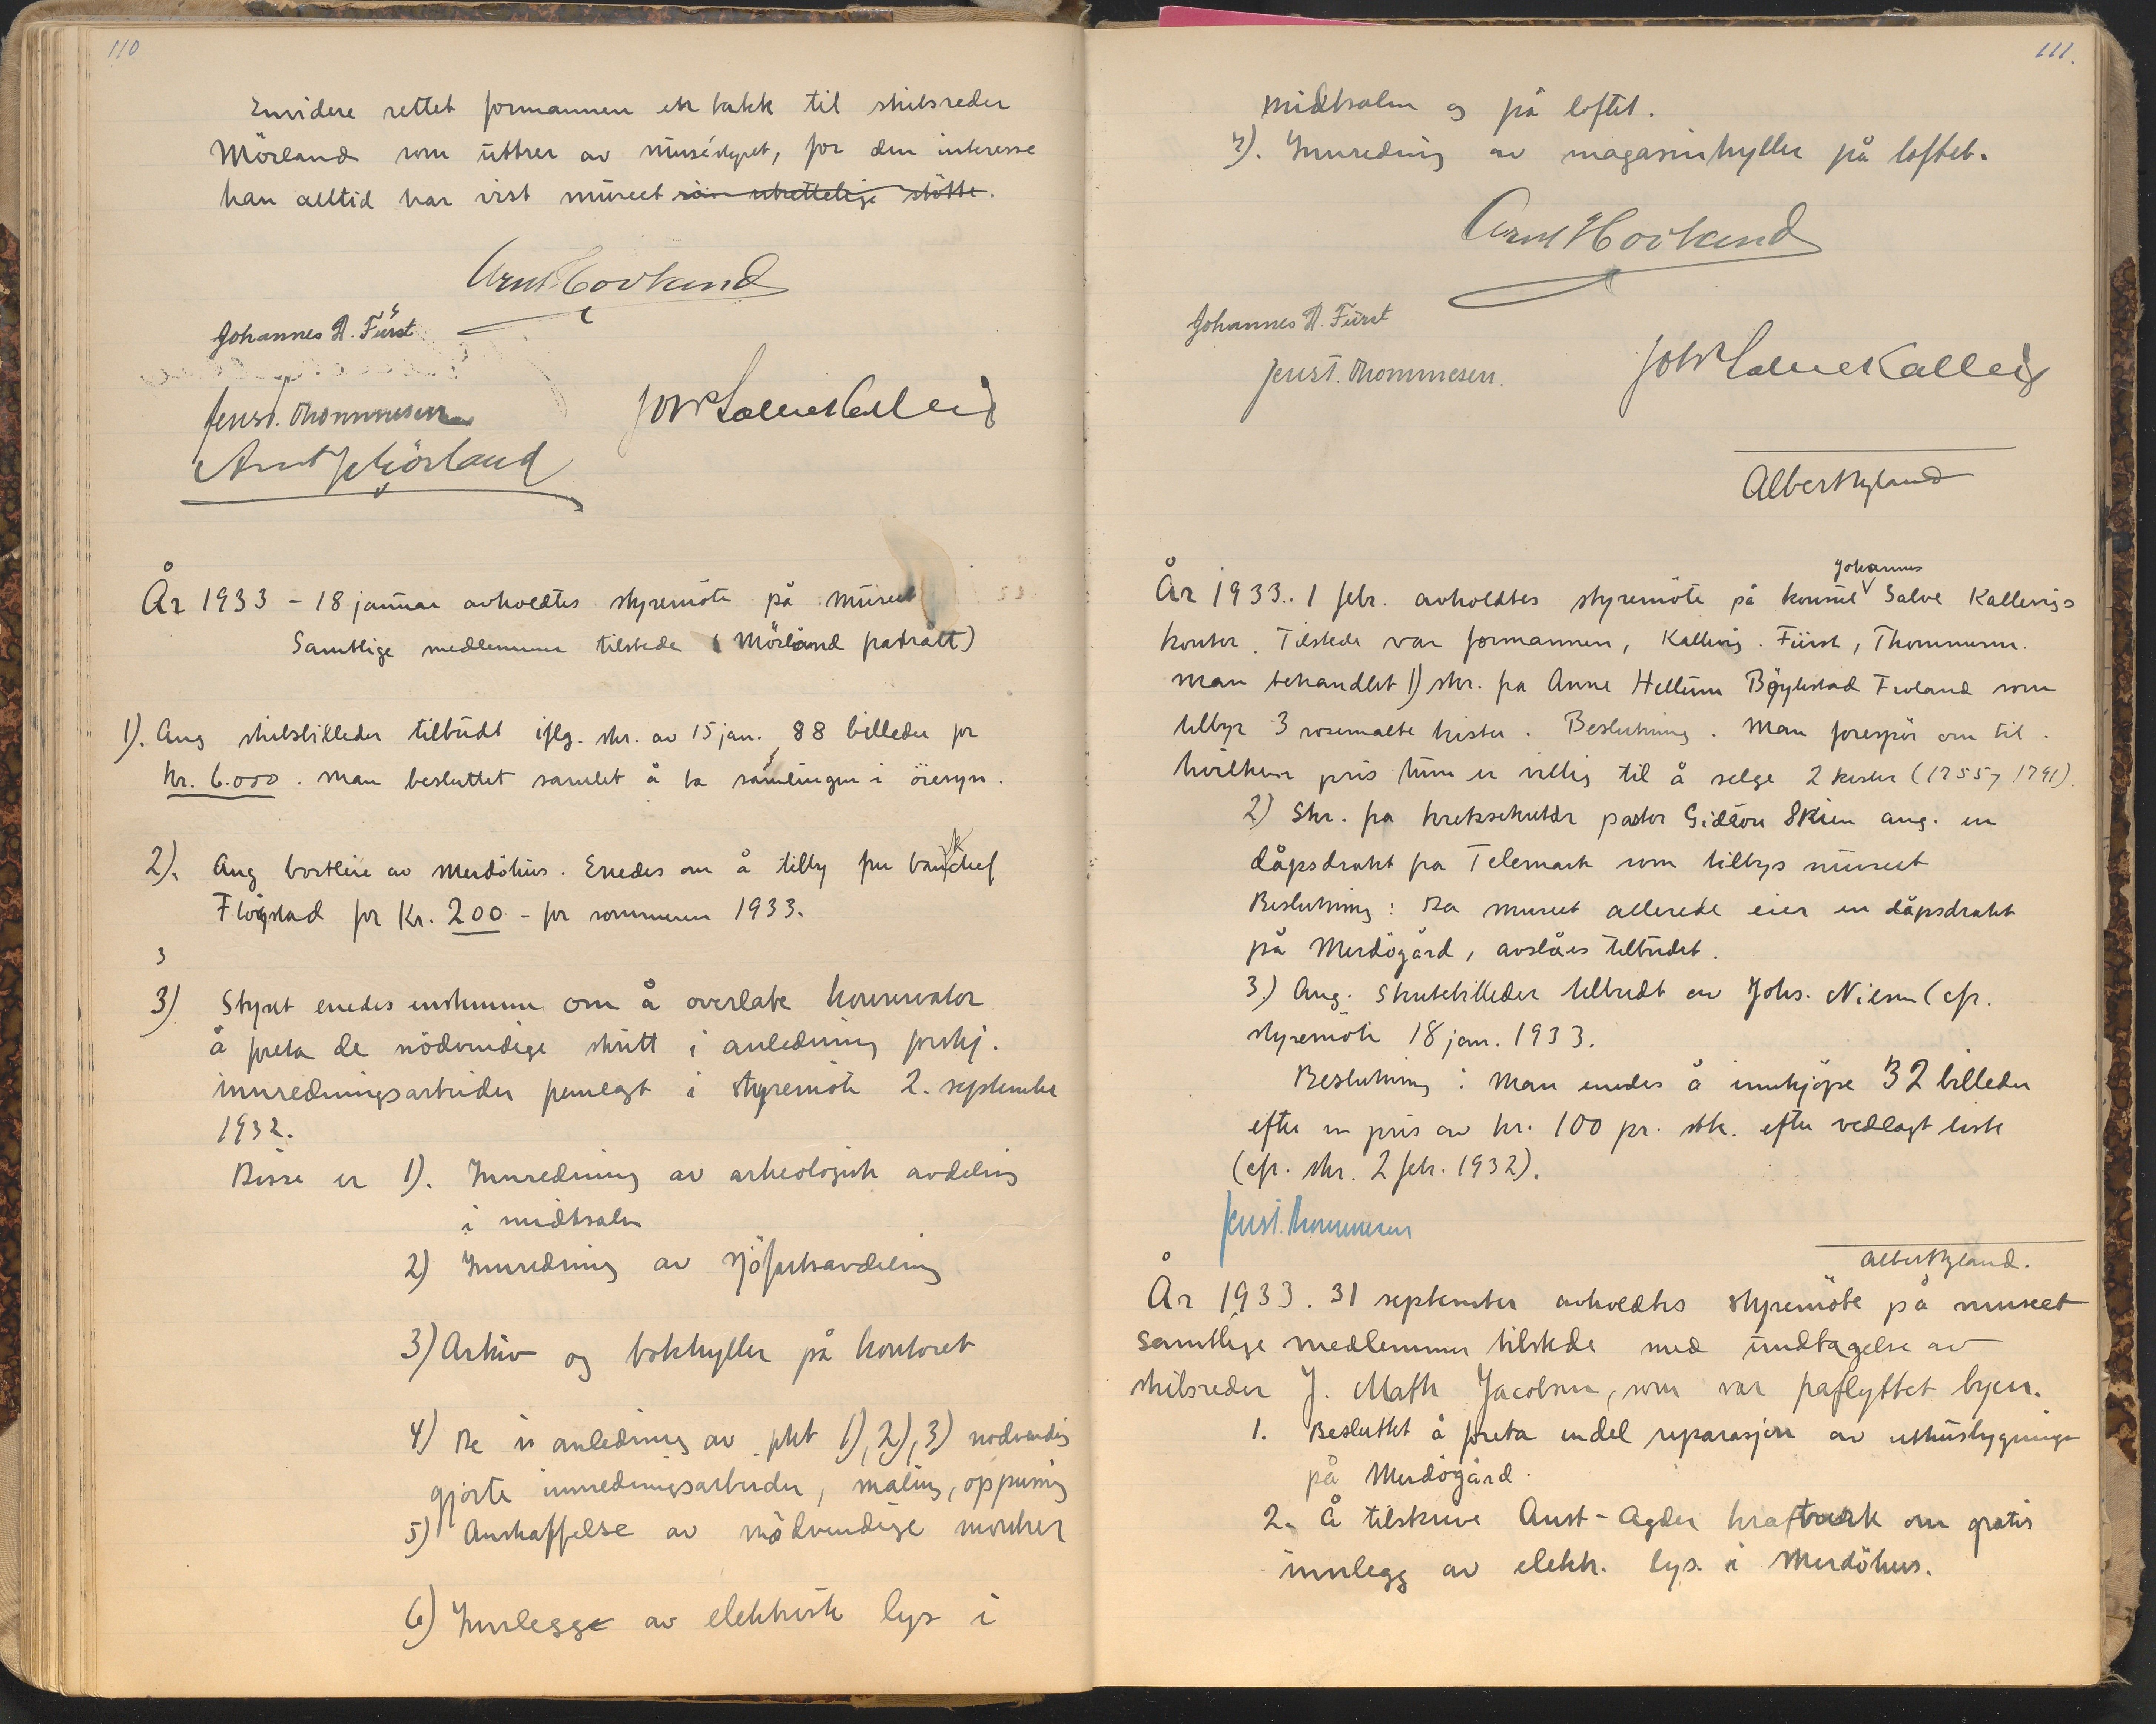 110
Envidere rettet formannen en takk til skibsreder
Mörland som uttrer av muséstyret, for den interesse
han alltid har vist museet
Arnt Hovland
Johannes D. Fürst
Jens T. Thommesen
Joh Salve Kallevig
Arnt J Mörland
År 1933 - 18 januar avholdtes styremöte på museet
Samtlige medlemmer tilstede (Mörland fratrått)
1). Ang skibsbilleder tilbudt iflg. skr. av 15 jan. 88 billeder for
kr. 6.000. Man besluttet samlet å ta samlingen i öiesyn.
2). Ang bortleie av Merdöhus. Enedes om å tilby fru bankchef
Flöystad for Kr. 200 - for sommeren 1933.
3
3) Styret enedes enstemmig om å overlate konservator
å foreta de nödvendige skritt i anledning forskj.
innredningsarbeider fremlagt i styremöte 2. september
1932.
Disse er 1). Innredning av arkeologisk avdeling
i midtsalen
2) Innredning av sjöfartsavdeling
3) Arkiv og bokhyller på kontoret
4) De i anledning av pkt 1), 2), 3) nödvendig
gjorte innredningsarbeider, maling, oppussing
5) Anskaffelse av nödvendige montrer
6) Innlegge av elektrisk lys i
111.
midtsalen og på loftet.
7). Innredning av magasinhyller på loftet.
Arnt Hovland
Johannes D. Fürst
Jens T. Thommesen.
Joh Salve Kallevig
Albert Ryland
År 1933. 1 febr. avholdtes styremöte på konsul Johannes Salve Kallevigs
kontor. Tilstede var formannen, Kallevig. Fürst, Thommesen.
Man behandlet 1) skr. fra Anne Hellum Böylestad Froland som
tilbyr 3 rosemalte kister. Beslutning. Man forespör om til
hvilken pris hun er villig til å selge 2 kister (1755, 1791).
2) Skr. fra kretssekretær pastor Gideon Skien ang. en
dåpsdrakt fra Telemark som tilbys museet
Beslutning: Da museet allerede eier en dåpsdrakt
på Merdögård, avslåes tilbudet.
3.) Ang. Skutebilleder tilbudt av Johs. Nilsen (cfr.
styremöte 18 jan. 1933.
Beslutning: Man enedes å innkjöpe 32 billeder
efter en pris av kr. 100 pr. stk. efter vedlagt liste
(cfr. skr. 2 febr. 1932).
Jens T. Thommesen
Albert Ryland.
År 1933. 31 september avholdtes styremöte på museet
Samtlige medlemmer tilstede med undtagelse av
skibsreder J. Math Jacobsen, som var fraflyttet byen.
1. Besluttet å foreta endel reparasjon av uthusbygninger
på Merdögård.
2. Å tilskrive Aust-Agder kraftverk om gratis
innlegg av elektr. lys i Merdöhus.